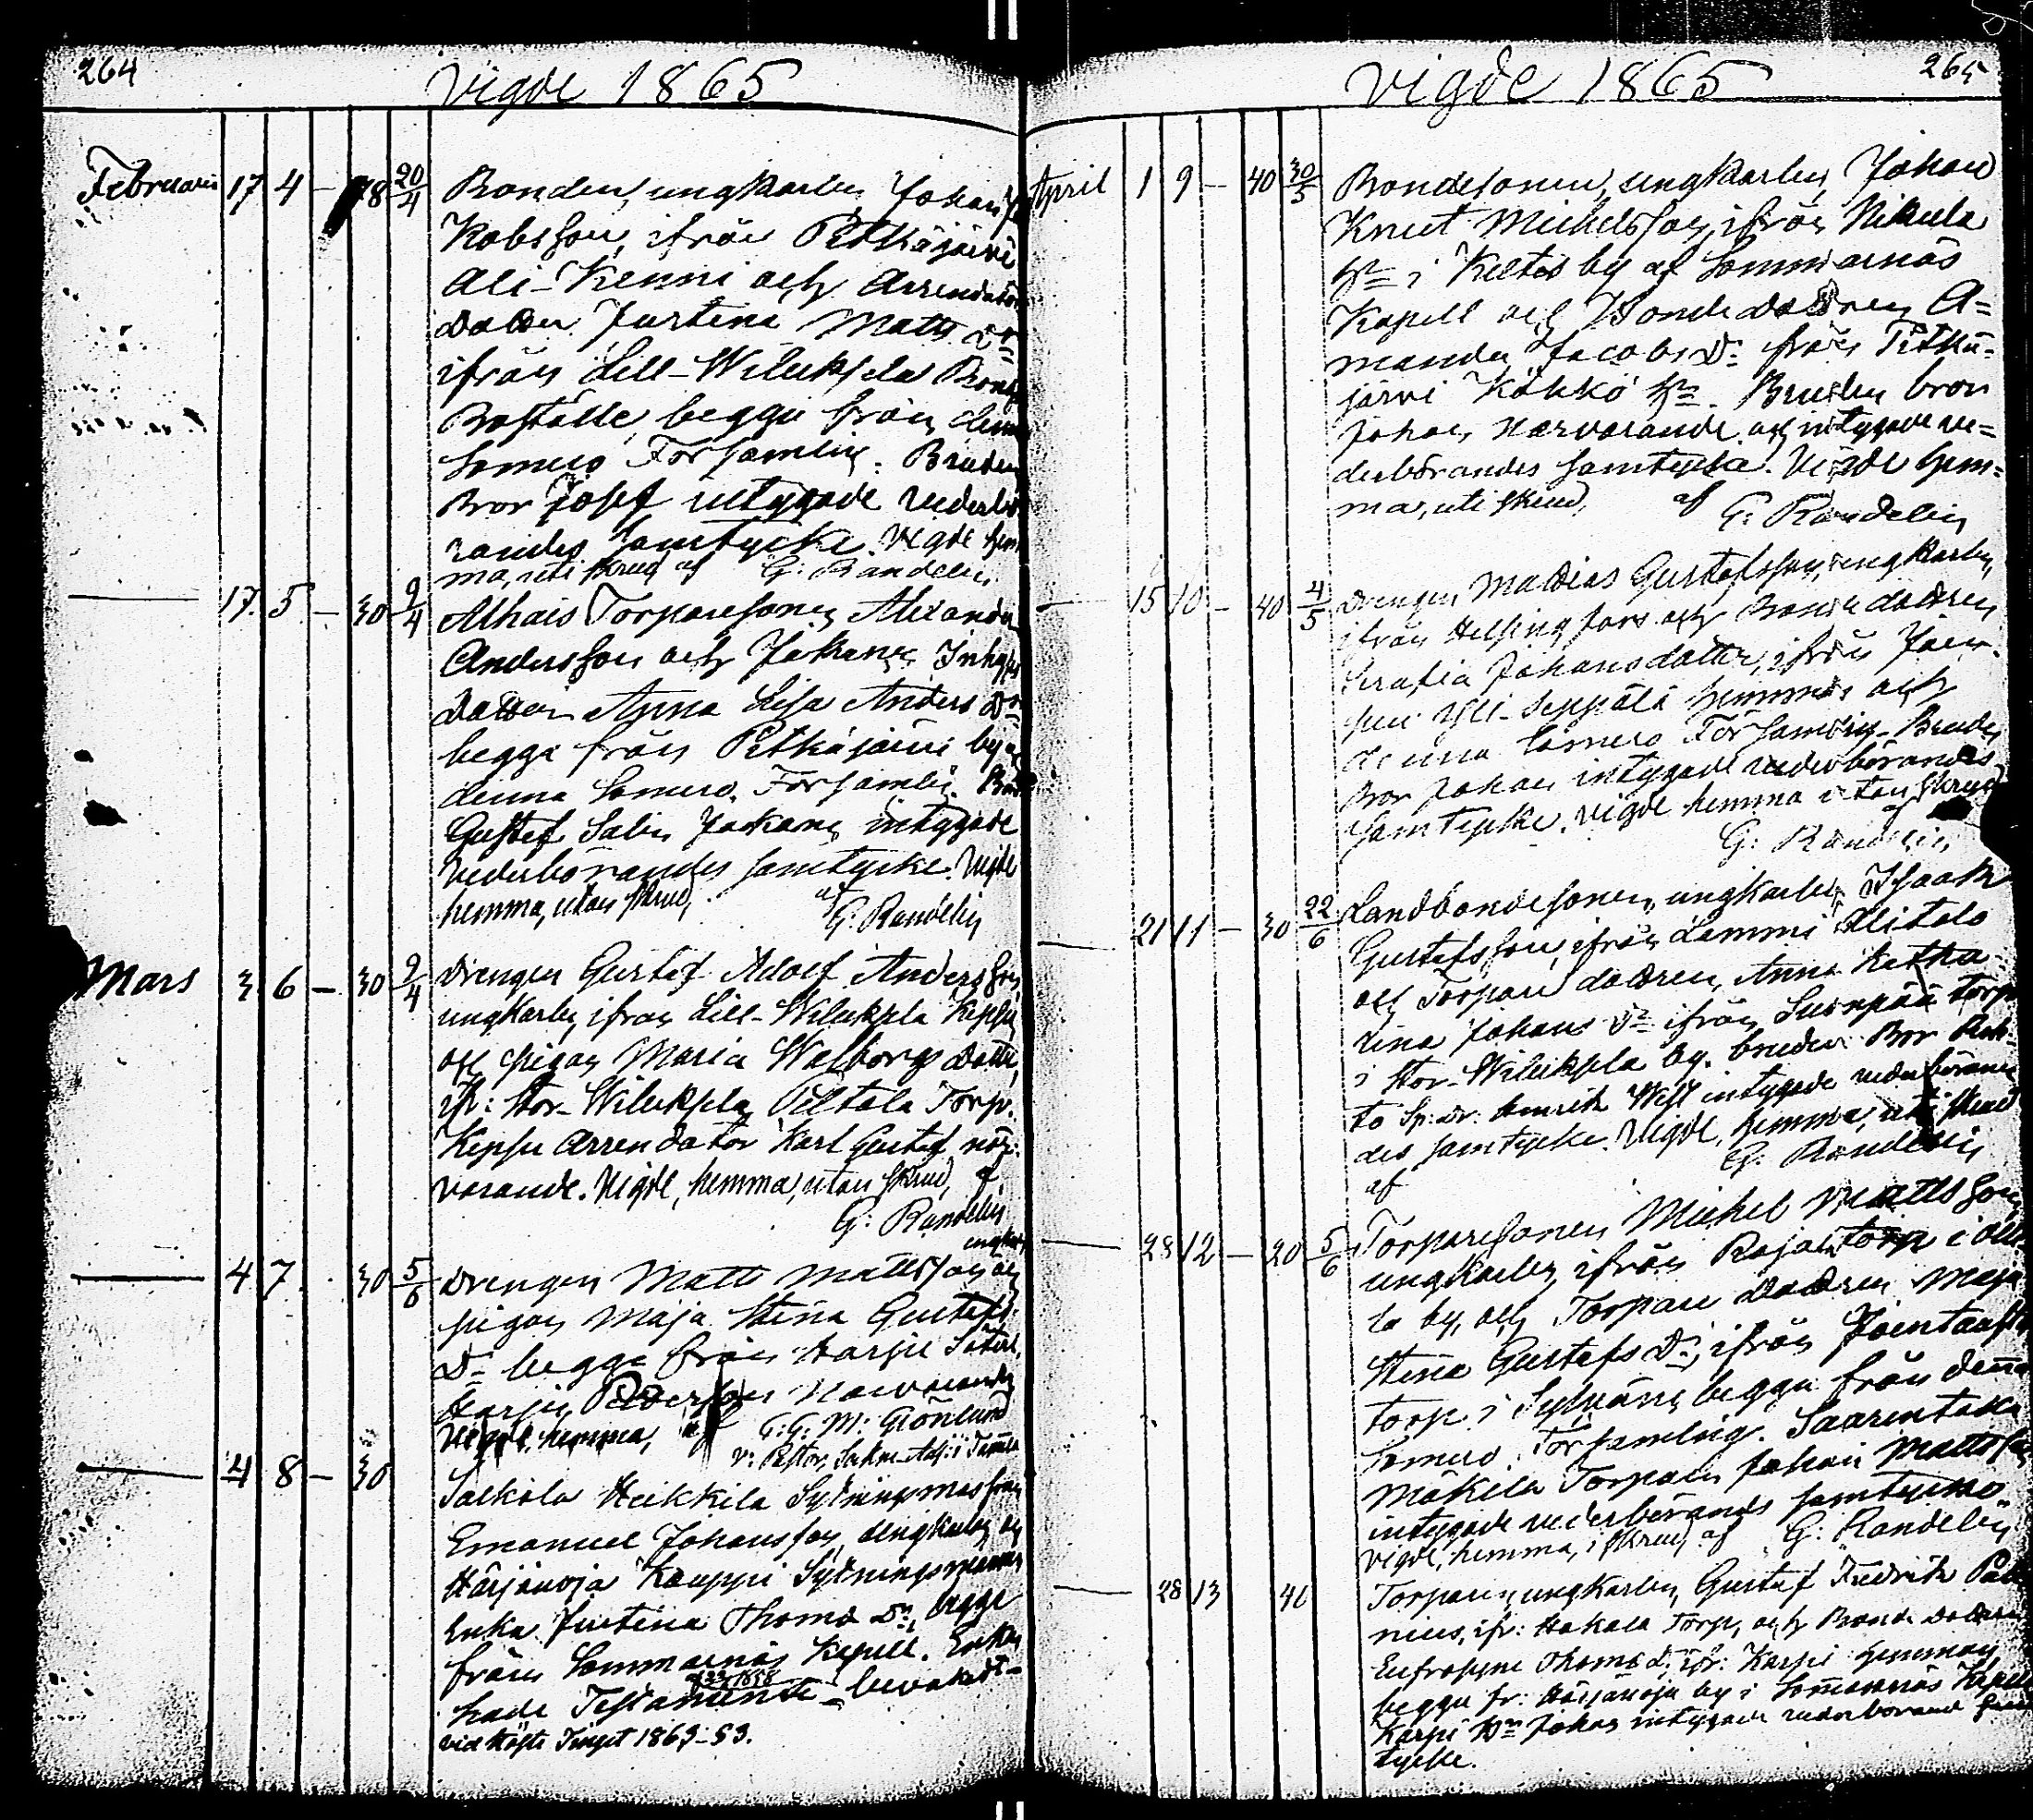 264
Vigde 1865
Februarii 17 4 – 78 20/4 Bonden, ungkarlen Johan Ja
Kobsson, ifrån Pitkäjärvi
Ali-Kenni och Arrendators
dotter Justina Matts Dr
ifrån Lill-Wiluksela
Boställe, begge från denna
Somero Församling. Brudens
Bror Josef intygade vederbö
randes samtycke. Vigde hem
ma, uti skrud af G: Randelin
17. 5 – 30 9/4 Alhais Torparesonen Alexander
Andersson och Jakans Inhyses
dotter Anna Lisa Anders Dr
begge från Pitkäjärvi by af
denna Somero Församling.
Gustef Salin Jakans intygade
vederbörandes samtycke. Vigde
hemma, utan skrud, af
G: Randelin
Mars 3 6 – 30 9/4 Drengen Gustaf Adolf Andersson
ungkarlen ifrån Lill-Wiluksela
och pigan Maria Walborgs dotter,
ifr: Stor-Wiluksela Piltola Torp.
Arrendator Karl Gustaf när-
varande. Vigde, hemma, utan skrud, af
G: Randelin
ungkarl
4 7. 30 5/6 Drengen Matts Mattsson och
pigan Maja Stina Gustafs
Dr begge från Harju Säteri,
Harju Pedersson närvarande
Vigde, hemma, af G: G: M: Grönlund
v: Pastor,
4 8 – 30
Salkola Heikkila Sytningmansson
Emanuel Johansson, ungkarlen och
Härjänoja Kauppi Sytningsmans
Enka Justina Thomas Dr, begge
från Sommarnäs Kapell. Enkan
hade Testamente bevakadt
vid Höste Tinget 1863 § 3.
265
Vigde 1865
April 1 9 – 40 30/5 Bondesonen, ungkarlen, Johan
Knut Michelsson, ifrån Nikula
hn i Keltis by af Sommarnäs
Kapell och Bonde dottren A=
manda Jacobs Dr från Pitkä-
järvi Köhkö hn. Brudens bror
Johan närvarande och intygade ve=
derbörandes samtycke. Vigde hem=
ma, uti skrud, af G: Randelin
15 10 – 40 4/5 Drengen Mathias Gustafsson, ungkarlen,
ifrån Helsingfors och Bonde dottren
Serafia Johansdotter, ifrån Joen-
suu Yli-Seppälä hemman och
denna Somero Församling. Brudens
Bror Johan intygade vederbörandes
samtycke. Vigde hemma utan skrud af
G: Randelin
21 11 – 30 22/6 Landbondesonen, ungkarlen, Isaak
Gustafsson, ifrån Lammi Alitalo
och Torpare dottren, Anna Katha
rina Johans Dr ifrån Suonpää torp
i Stor-Wiluksela by. Brudens Bror
intygade vederböran
des samtycke. Vigde, hemma, uti skrud
af G: Randelin
28 12 – 20 5/6 Torparesonen Michel Mattsson,
ungkarlen, ifrån Rajala torp i
la by, och Torpare dottren Maja
Stina Gustafs Dr, ifrån
torp i Sylvänä, begge från denna
Somero Församling. Saarentaka
Mäkelä Torparen Johan Mattsson
intygade vederbörandes samtycke
Vigde, hemma, i skrud, af G: Randelin
28 13 40 Torparen, ungkarlen, Gustaf Fredrik
nius, ifr: Hakala Torp, och Bonde dottren
Eufrosyne Thomas d, ifr: Karpi hemman,
begge fr: Härjänoja by i Sommarnäs Kapell
Karpi Johan intygade vederbörande sam
tycke.